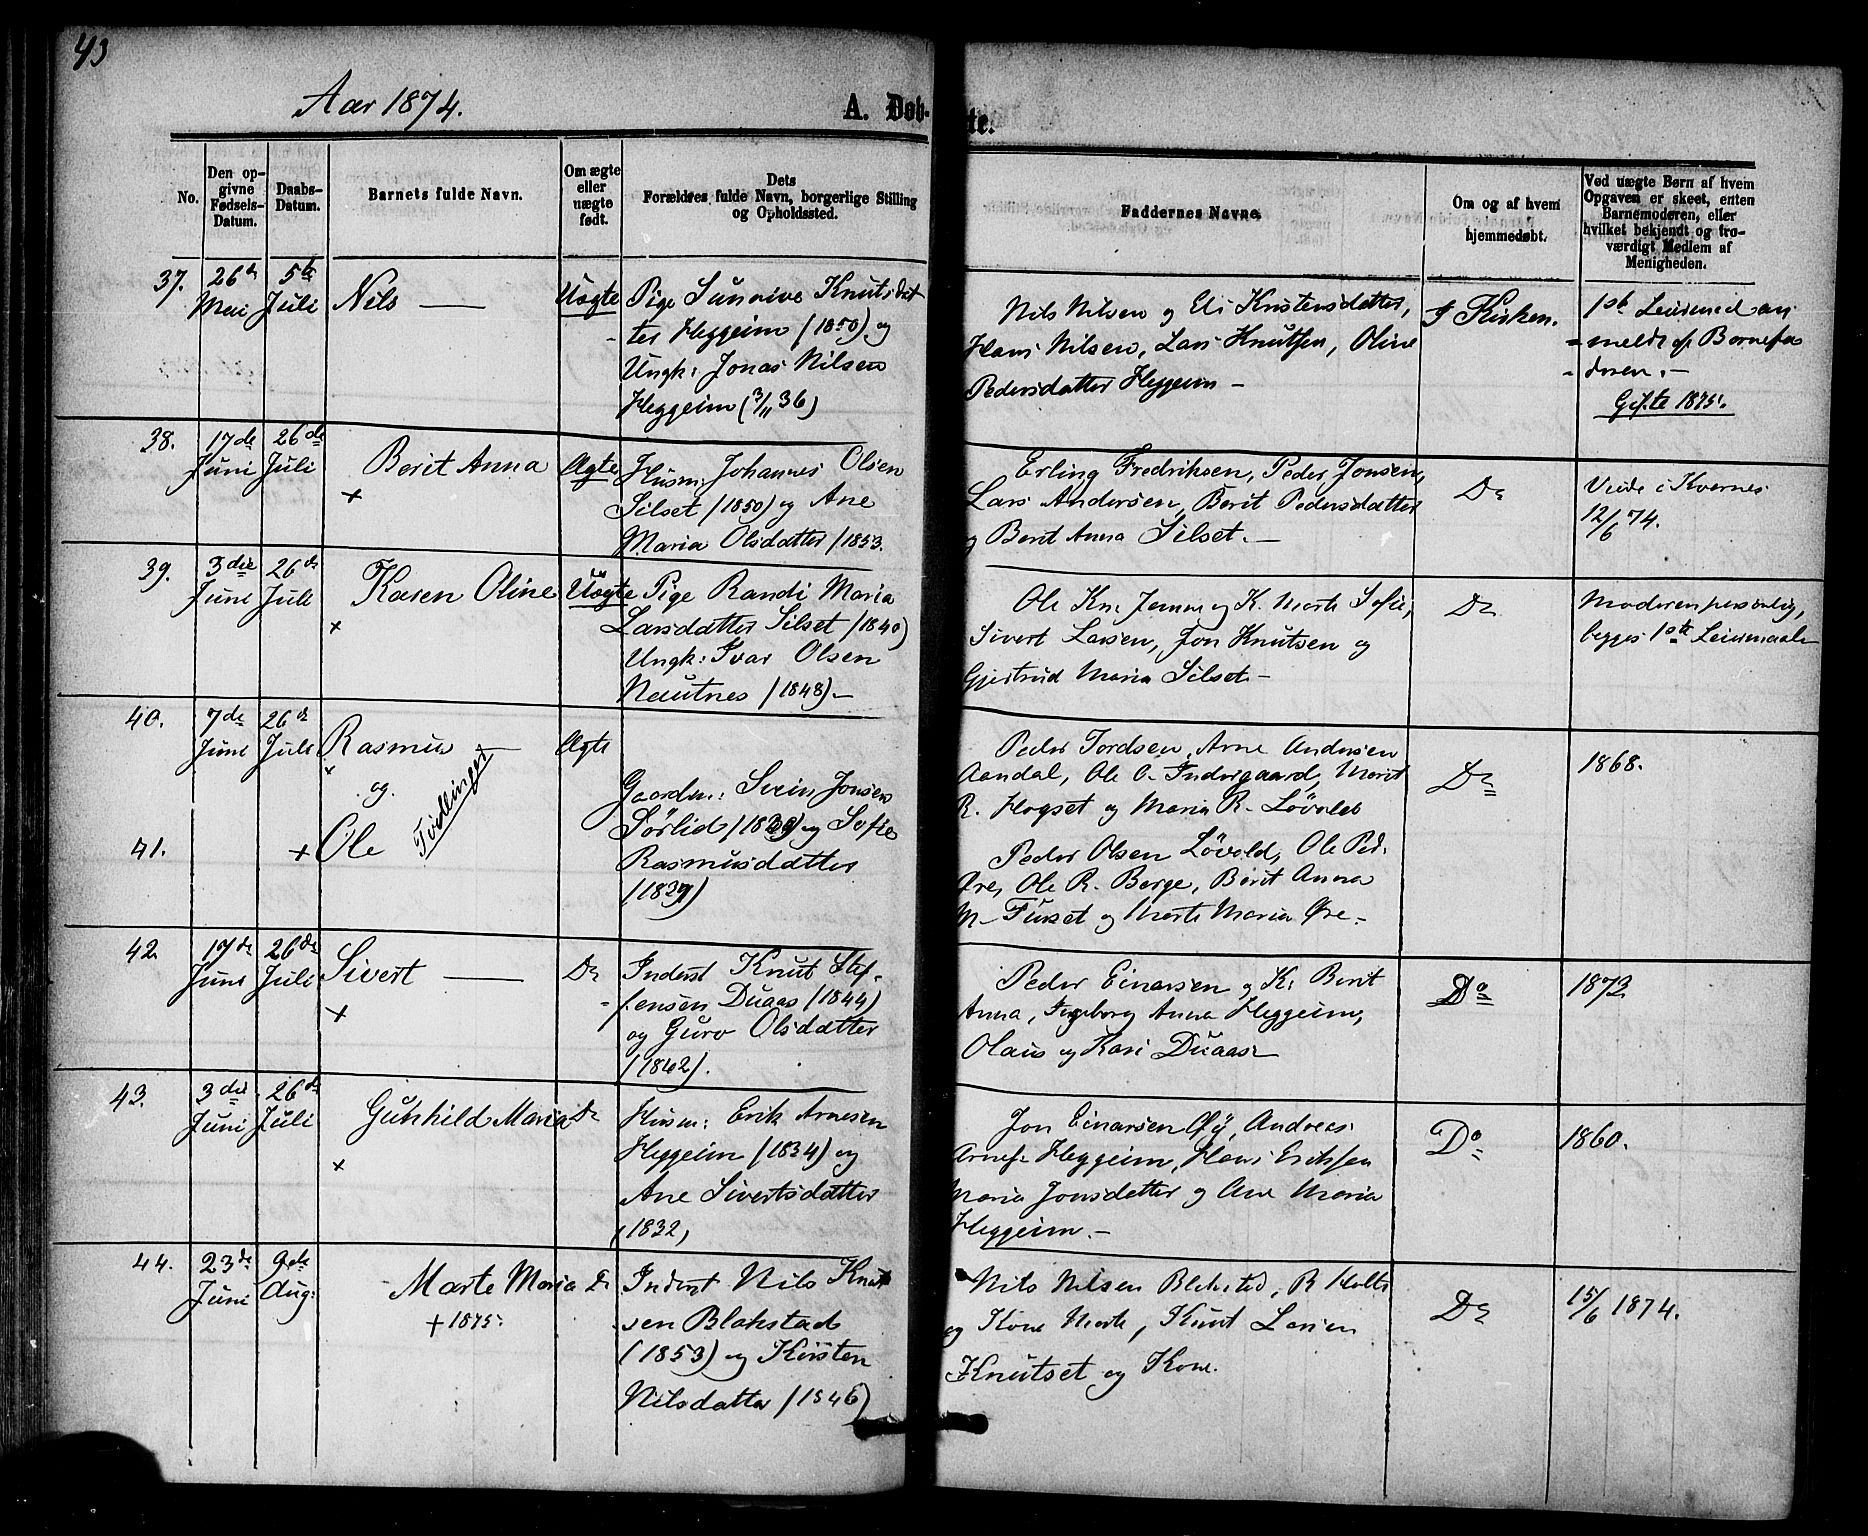 43
Aar 1874.
A. Døb-
te.
No.
Den op-
givne
Fødsels-
Datum.
Daabs-
Datum.
Barnets fulde Navn.
Om ægte
eller
uægte
født.
Dets
Forældres fulde Navn, borgerlige Stilling
og Opholdssted.
Faddernes Navne.
Om og af hvem
hjemmedøbt.
Ved uægte Børn af hvem
Opgaven er skeet, enten
Barnemoderen, eller
hvilket bekjendt og tro-
værdigt Medlem af
Menigheden.
37.
26de
Mai
5te
Juli
Nils —
Uægte
Pige Sunnive Knutsdat-
ter Heggeim (1850) og
Ungk: Jonas Nilsen
Heggeim (3/11 36)
Nils Nilsen og Eli Knutersdatter,
Hans Nilsen, Lars Knutsen, Oline
Pedersdatter Heggeim —
I Kirken.
1st Leiermaal an
meldt af Barnefa
deren. —
Gifte 1875.
38.
17de
Juni
26de
Juli
Berit Anna
+
Ægte
Husm: Johannes Olsen
Silset (1850) og Ane
Maria Olsdatter (1853.
Erling Fredriksen, Peder Jonsen,
Lars Andersen, Berit Pedersdatter
og Berit Anna Silset. —
Do
Viede i Kvernes
12/6 74.
39.
3die
Juni
26de
Juli
Karen Oline
+
Uægte
Pige Randi Maria
Larsdatter Silset (1840)
Ungk: Ivar Olsen
Nautnes (1848) —
Ole Kn. Jemne og K. Marte Sofie,
Sivert Larsen, Jon Knutsen og
Gjertrud Maria Silset —
Do
Moderen personlig,
begges 1ste Leiermaal
40.
7de
Juni
26de
Juli
Rasmus —
+
og
Tvillinger
Ægte
Gaardm: Svein Jonsen
Sørlid (1839) og Sofie
Rasmusdatter
(1839)
Peder Tordsen, Arne Andersen
Aandal, Ole O. Indergaard, Marit
R. Hogset og Maria R. Løvold
Do
1868.
41.
+ Ole
Peder Olsen Løvold, Ole Ped.
Øre, Ole R. Berge, Berit Anna
M. Furset og Marte Maria Øre —
42.
17de
Juni
26de
Juli
Sivert —
+
Do
Inderst Knut Stef-
fensen Duaas (1844)
og Guro Olsdatter
(1842).
Peder Einarsen og K. Berit
Anna, Ingeborg Anna Heggeim,
Olaus og Kari Duaas
Do
1873
43.
3die
Juni
26de
Juli
Gunhild Maria
+
Do
Husm: Erik Arnesen
Heggeim (1834) og
Ane Sivertsdatter
(1832)
Jon Einarsen Øy, Andreas
Arnesen Heggeim, Hans Eriksen
Maria Jonsdatter og Ane Maria
Heggeim. —
Do
1860.
44.
23de
Juni
9de
Aug:
Marte Maria
+ 1875.
Do
Inderst Nils Knut
sen Blakstad
(1853) og Kirsten
Nilsdatter (1846)
Nils Nilsen Blakstad, R Holte
og Kone Marte, Knut Larsen
Knutset og Kone.
Do
15/6 1874.